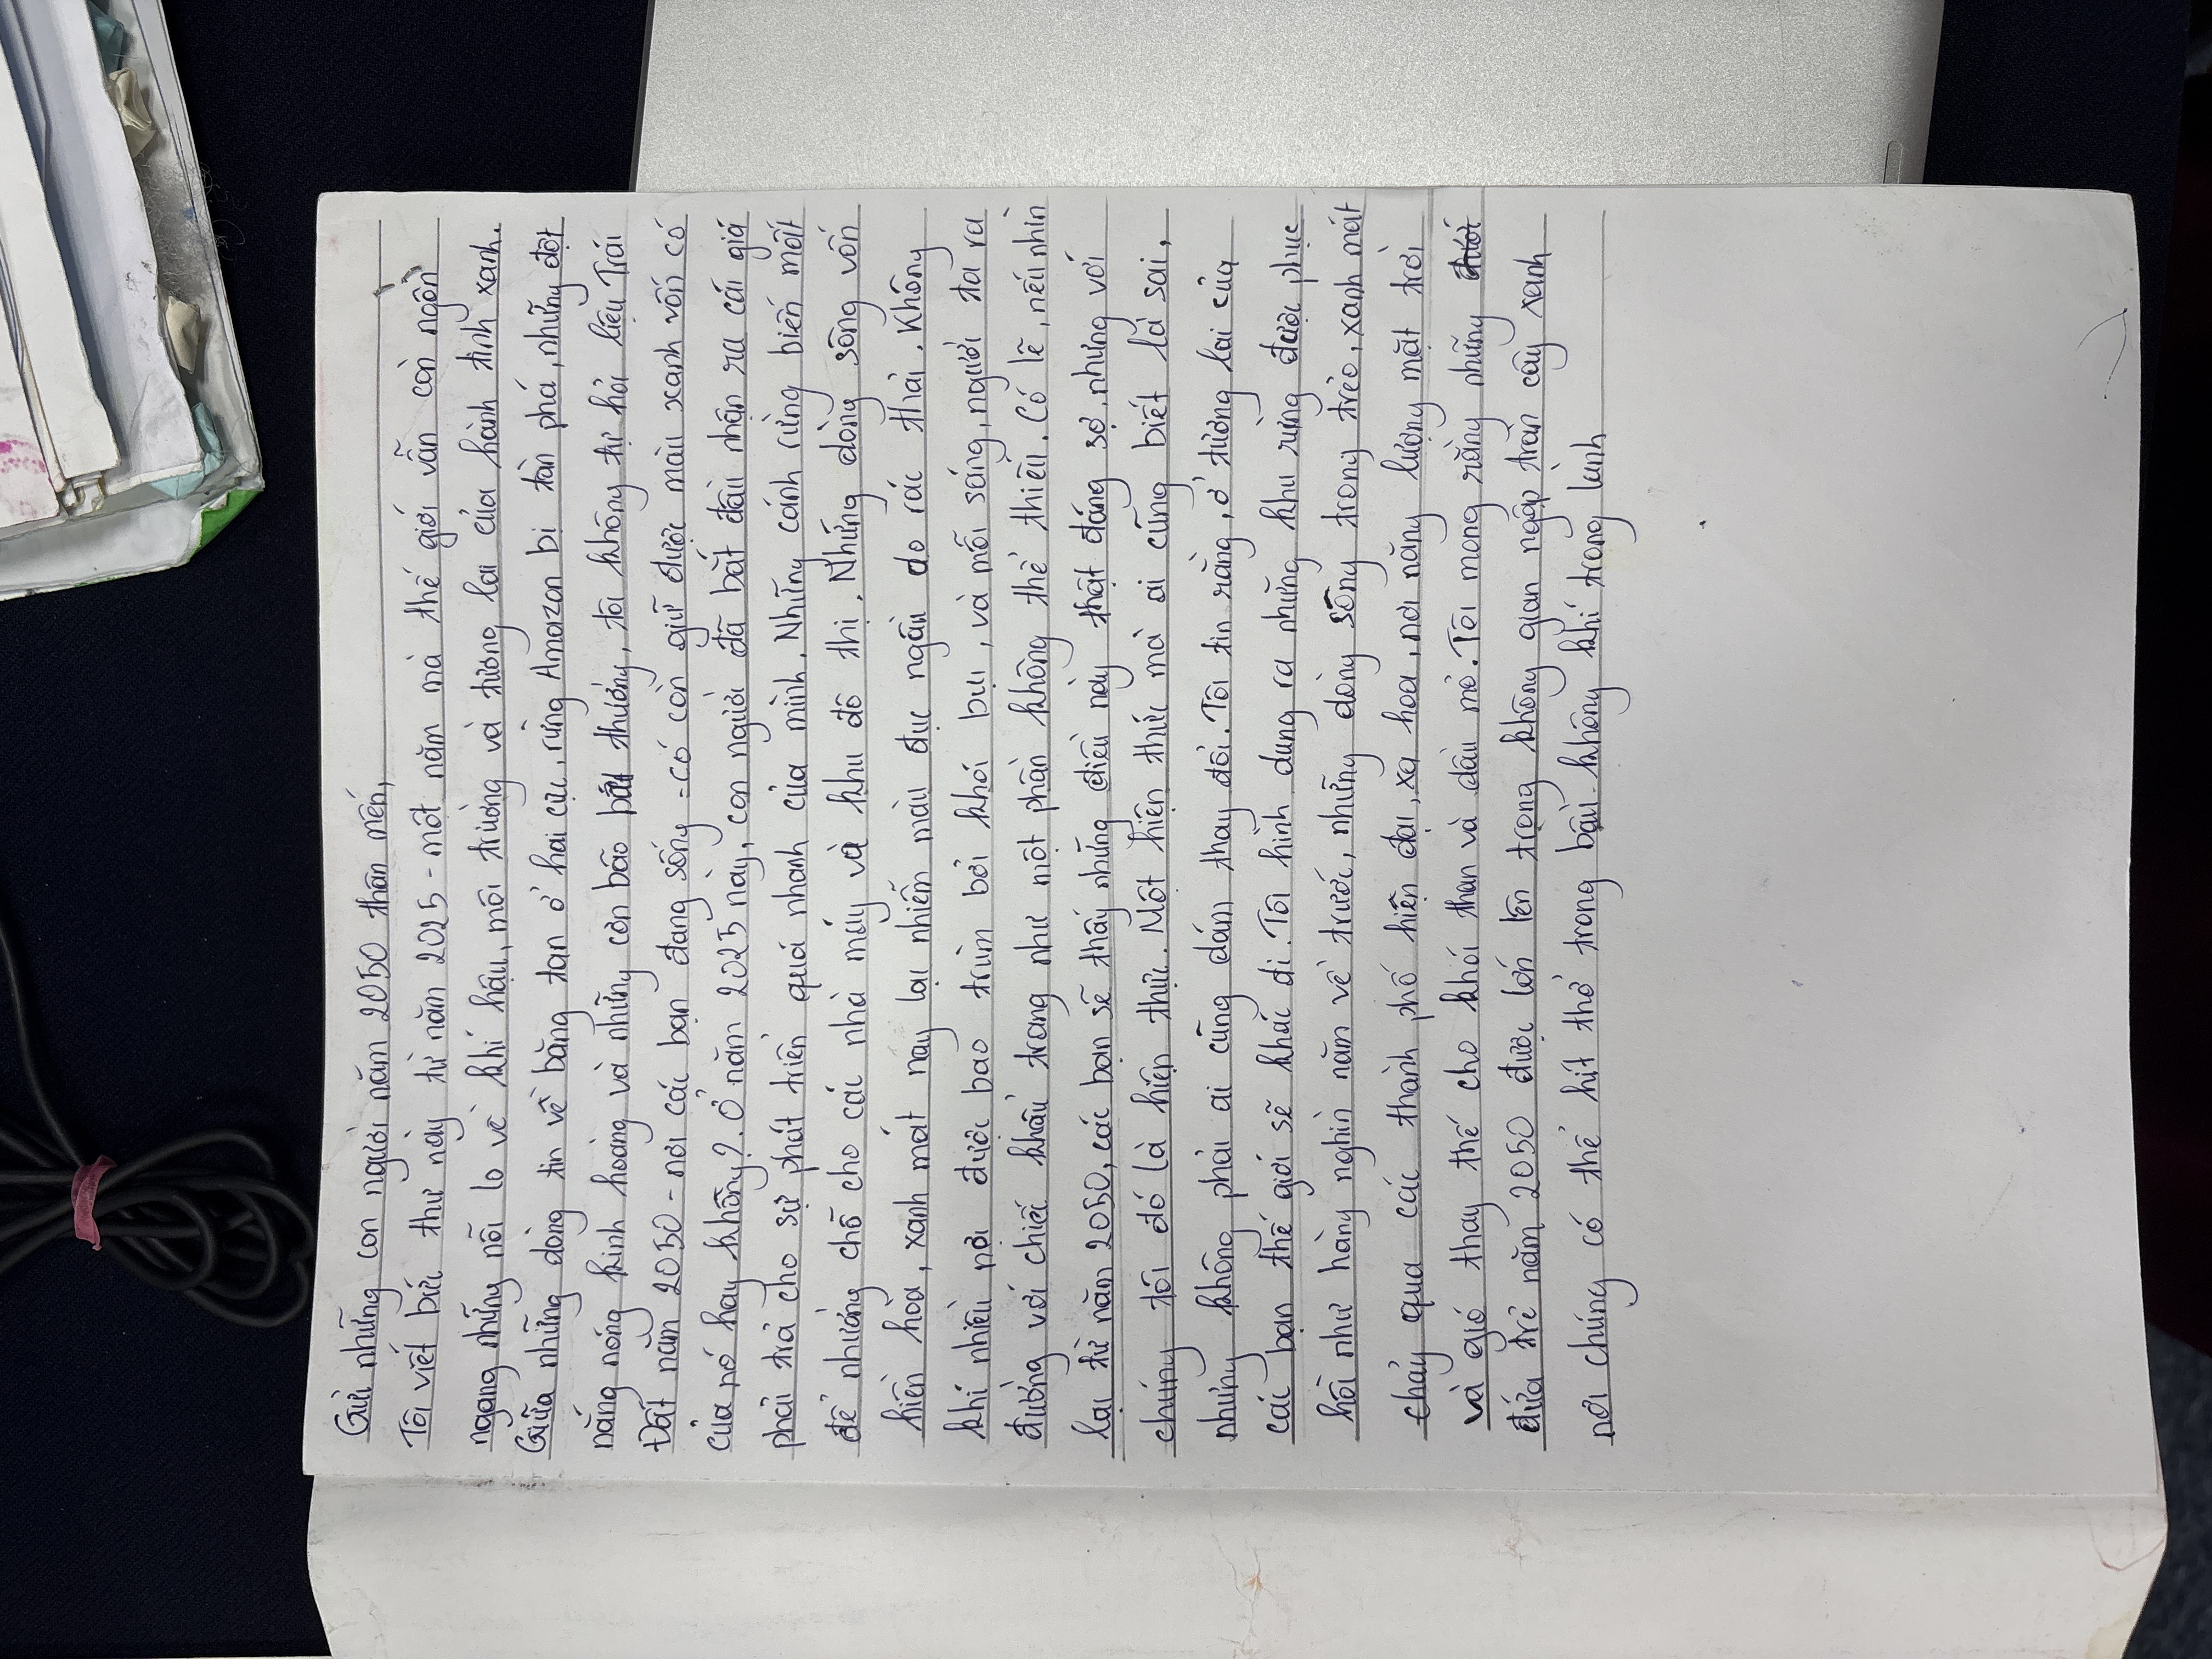 Gửi những con người năm 2050 thân mến,
Tôi viết bức thư này từ năm 2025 - một năm mà thế giới vẫn còn ngổn
ngang những nỗi lo về khí hậu, môi trường và tương lai của hành tinh xanh.
Giữa những dòng tin về băng tan ở hai cực, rừng Amazon bị tàn phá, những đợt
nắng nóng kinh hoàng và những cơn bão bất thường, tôi không tự hỏi liệu Trái
Đất năm 2050 - nơi các bạn đang sống - có còn giữ được màu xanh vốn có
của nó hay không?. Ở năm 2025 này, con người đã bắt đầu nhận ra cái giá
phải trả cho sự phát triển quá nhanh của mình. Những cánh rừng biến mất
để nhường chỗ cho các nhà máy và khu đô thị. Những dòng sông vốn
hiền hòa, xanh mát nay lại nhiễm màu đục ngàu do rác thải. Không
khí nhiều nơi được bao trùm bởi khói bụi, và mỗi sáng, người ta ra
đường với chiếc khẩu trang như một phần không thể thiếu. Có lẽ, nếu nhìn
lại từ năm 2050, các bạn sẽ thấy những điều này thật đáng sợ, nhưng với
chúng tôi đó là hiện thực. Một hiện thực mà ai cũng biết là sai,
nhưng không phải ai cũng dám thay đổi. Tôi tin rằng, ở tương lai của
các bạn thế giới sẽ khác đi. Tôi hình dung ra những khu rừng được phục
hồi như hàng nghìn năm về trước, những dòng sông trong trẻo, xanh mát
chảy qua các thành phố hiện đại, xa hoa, nơi năng lượng mặt trời
và gió thay thế cho khói than và dầu mỏ. Tôi mong rằng những
đứa trẻ năm 2050 được lớn lên trong không gian ngập tràn cây xanh
nơi chúng có thể hít thở trong bầu không khí trong lành